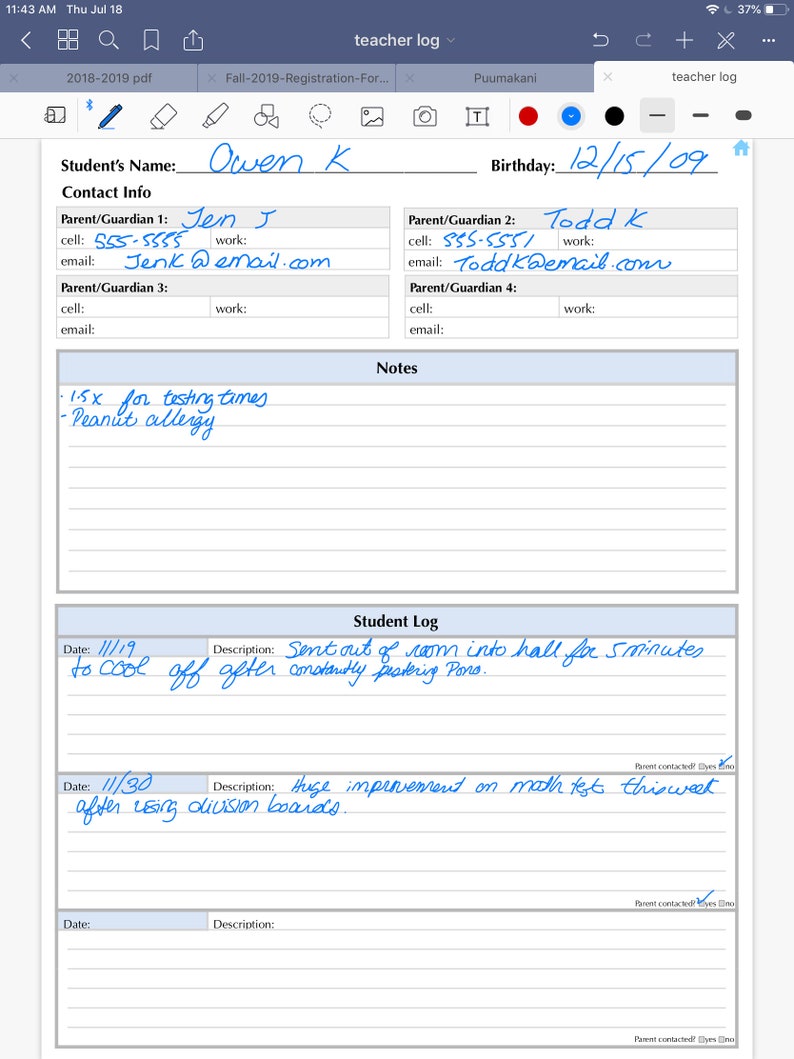 11:43 AM Thu Jul 18 37%
teacher log
2018-2019 pdf Fall-2019-Registration-For... Puumakani teacher log
Student's Name: Owen K Birthday: 12/15/09
Contact Info
Parent/Guardian 1: Jen J Parent/Guardian 2: Todd K
cell: 555-5555 work: cell: 555-5551 work:
email: JenK@email.com email: ToddK@email.com
Parent/Guardian 3: Parent/Guardian 4:
cell: work: cell: work:
email: email:
Notes
· 1.5x for testing times
- Peanut allergy
Student Log
Date: 11/19 Description: Sent out of room into hall for 5 minutes
to cool off after constantly pestering Pono.
Parent contacted? yes no
Date: 11/30 Description: Huge improvement on math test this week
after using division boards.
Parent contacted? yes no
Date: Description:
Parent contacted? yes no